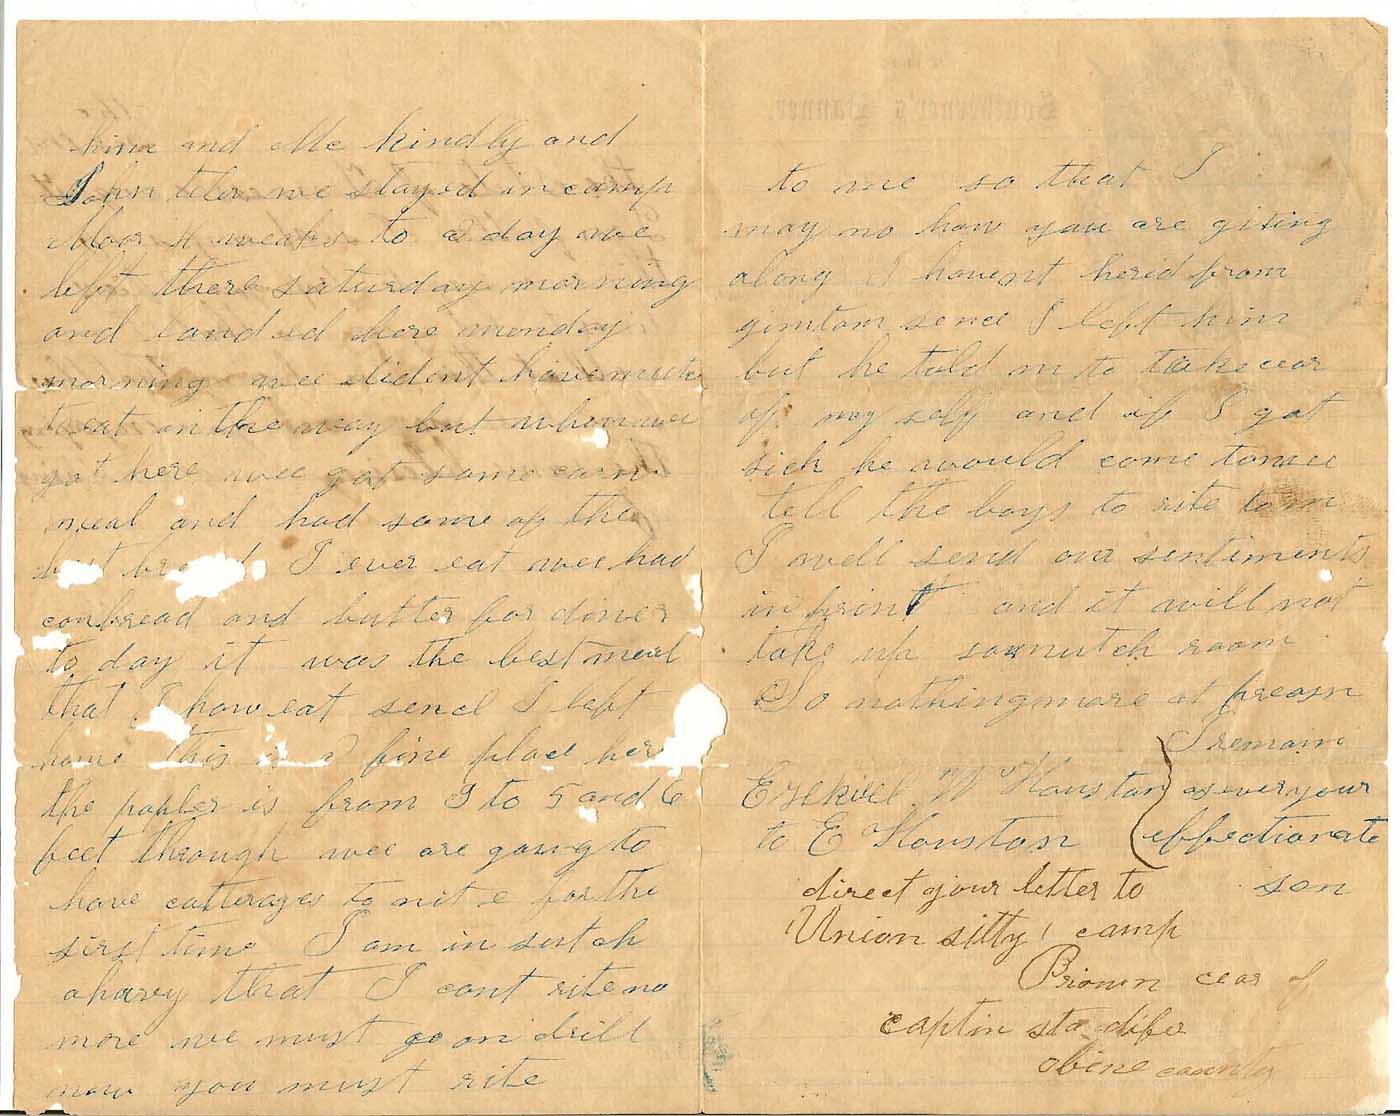 him and Me kindly and
John  we stayed in camp
Moor  weaks to a day we
left there saturday morning
and landed here monday
morning wee dident have mutch
to eat on the way but when wee
got here wee got some corn
meal and had some of the
best bread I ever eat wee had
conbread and butter for diner
to day it was the best meal
that I have eat sence I left
home this is a fine place here
the pohler is from 3 to 5 and 6
feet through wee are going to
have catterages to nite for the
first time I am in sutch
a hurry that I cant rite no
more we must go on drill
now you must rite
to me so that I
may no how you are giting
along I havent herid from
gimtom sence I left him
but he told m to take cear
of my self and if I got
sick he would come to mee
tell the boys to rite to m
I well send our sentiments
in print and it will not
take up so mutch room
So nothing more at presen
I remain
Ezekiel W Houston as ever your
to E Houston effectionate
son
direct your letter to
Union sitty camp
Brown cear of
captin sta difer
obine county
Southrener's Banner.